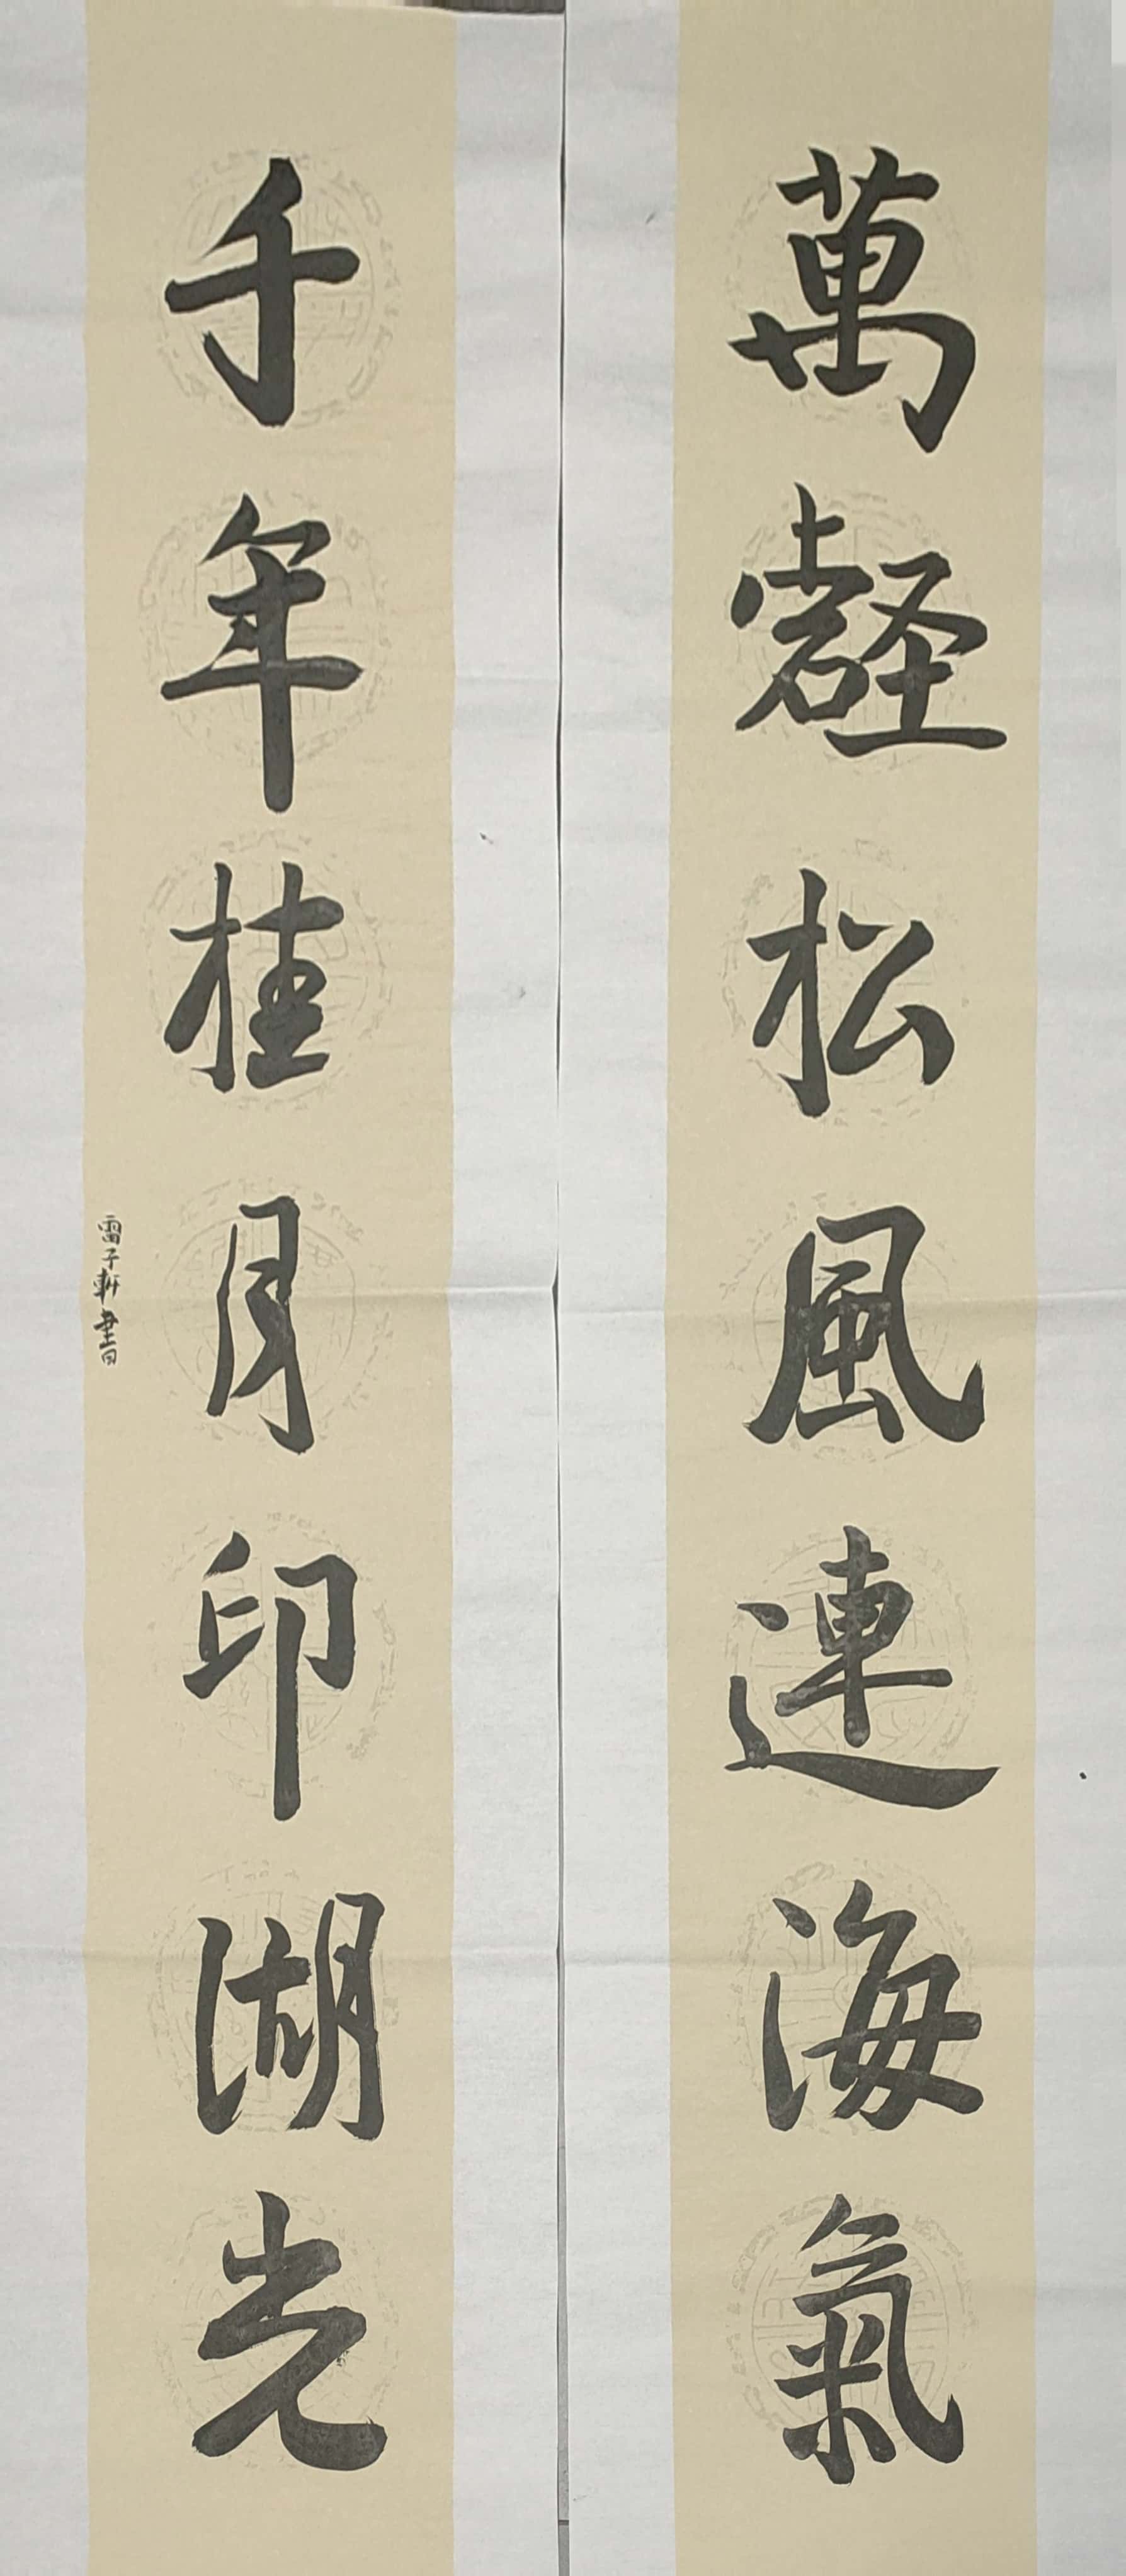 萬壑松風連海氣
千年桂月印湖光
雷子軒書